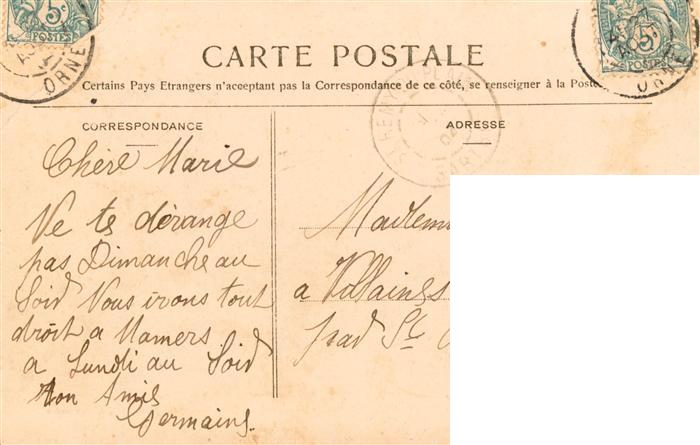 5c
POSTES
ORNE
5c
POSTES
ORNE
CARTE POSTALE
Certains Pays Etrangers n'acceptant pas la Correspondance de ce côté, se renseigner à la Poste
CORRESPONDANCE
Chère Marie
Ne te dérange
pas Dimanche au
Soid Nous irons tout
droit a Mamers
a Lundi au Soid
ton Amie
Germaine
ADRESSE
Madem
a Villaines
par St